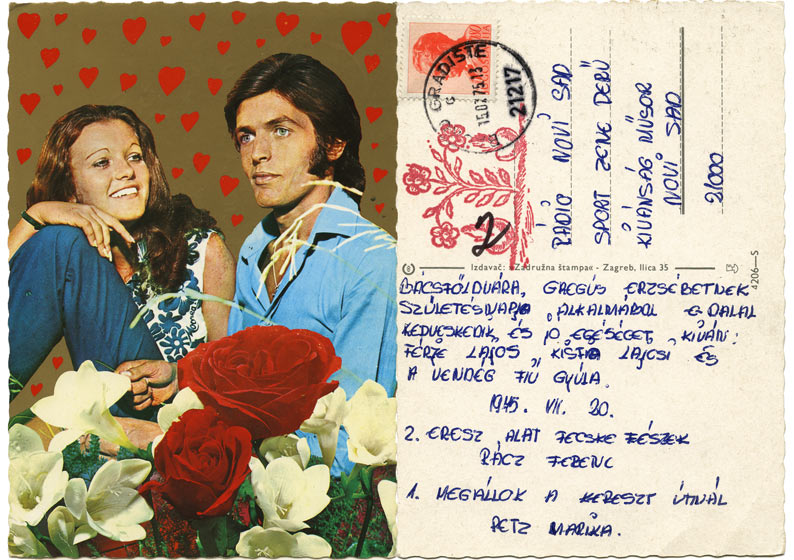 GRADIŠTE
15.07.75.13
21217
2
RÁDIO NOVI SAD
SPORT ZENE DERÜ
KIVÁNSÁG MÜSOR
NOVI SAD
21000
Izdavač: »Zadružna štampa« - Zagreb, Ilica 35
4206—S
BÁCSFÖLDVÁRA, GREGUS ERZSÉBETNEK
SZÜLETÉSNAPJA ALKALMÁBOL DALAL
KEDVESKEDIK, ÉS JO EGÉSÉGET KIVÁN:
FÉRJE LAJOS, KISFIA LAJCSI ÉS
A VENDÉG FIÚ GYULA.
1945. VII. 20.
2. ERESZ ALAT FECSKE FÉSZEK
RÁCZ FERENC
1. MEGÁLLOK A KERESZT ÚTNÁL
PETZ MARIKA.